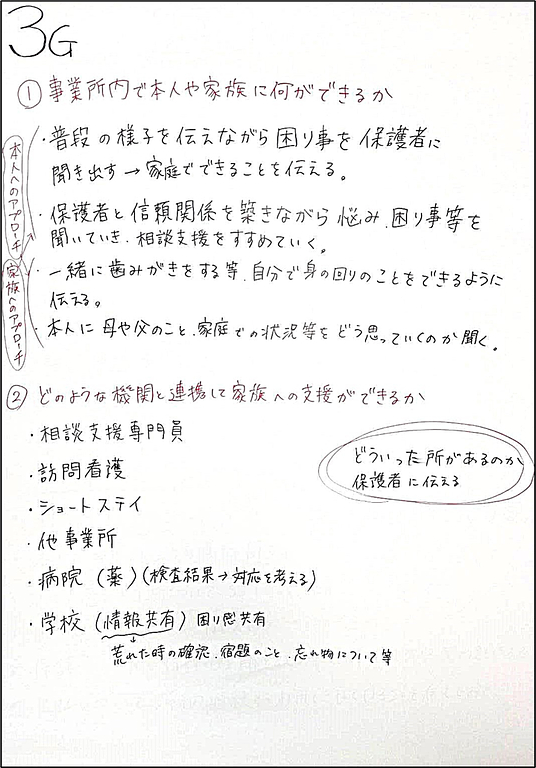 3G
① 事業所内で本人や家族に何ができるか
本人へのアプローチ
・普段の様子を伝えながら困り事を保護者に
聞き出す→家庭でできることを伝える。
・保護者と信頼関係を築きながら悩み、困り事等を
聞いていき、相談支援をすすめていく。
家族へのアプローチ
・一緒に歯みがきをする等、自分で身の回りのことをできるように
伝える。
・本人に母や父のこと、家庭での状況等をどう思っていくのか聞く。
② どのような機関と連携して家族への支援ができるか
・相談支援専門員
・訪問看護
・ショートステイ
・他事業所
・病院（薬）（検査結果→対応を考える）
・学校（情報共有）困り感共有
↓
荒れた時の確認、宿題のこと、忘れ物について等
どういった所があるのか
保護者に伝える